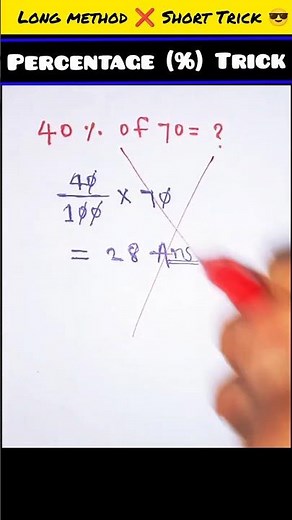 Long method ❌ Short Trick 😎
Percentage (%) Trick
40 % of 70 = ?
40
100
× 70
= 28 Ans